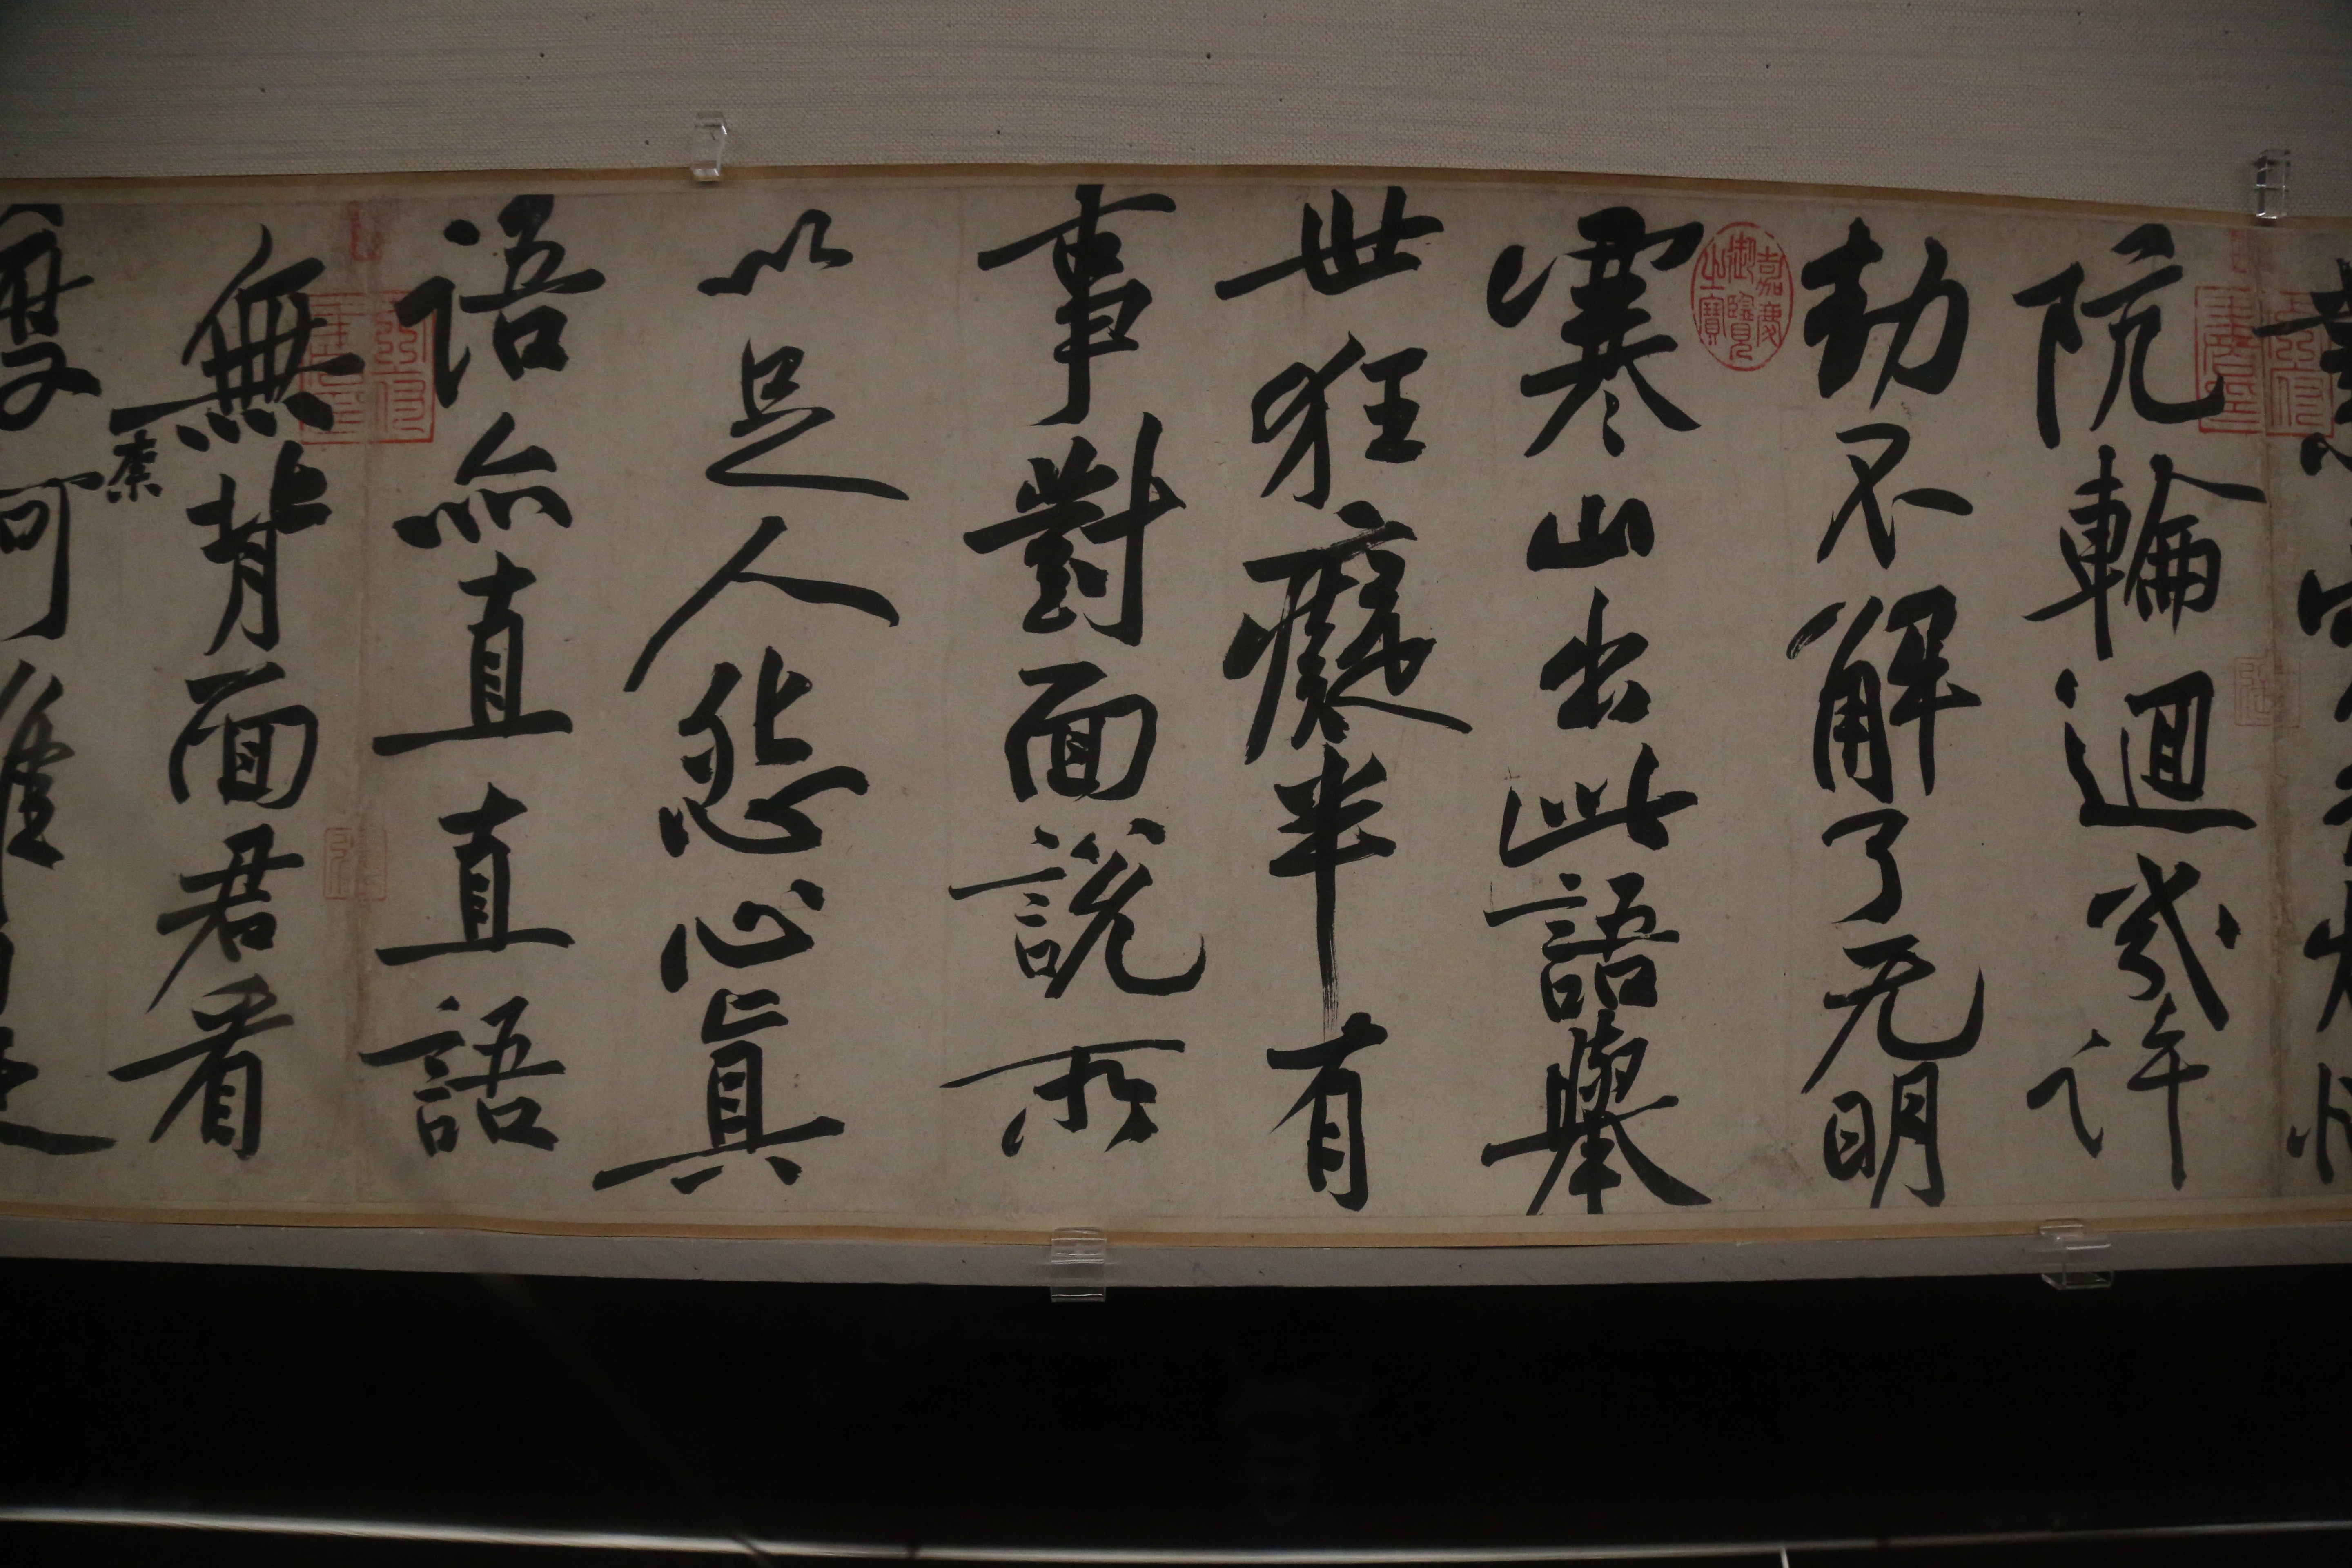 阬輪迴幾許
劫不解了无明
嘉慶御覽之寶
寒山出此語舉
世狂癡半有
事對面說所
以足人怨心真
語亦直直語
無背面君看
柰